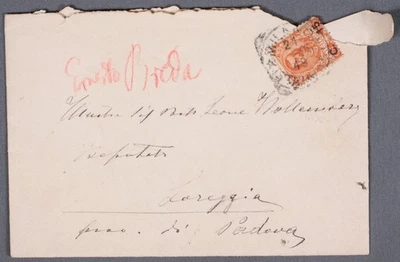 Ernesto Breda
Illustre Sig Dott Leone Wollemborg
Deputato
Loreggia
prov. di Padova